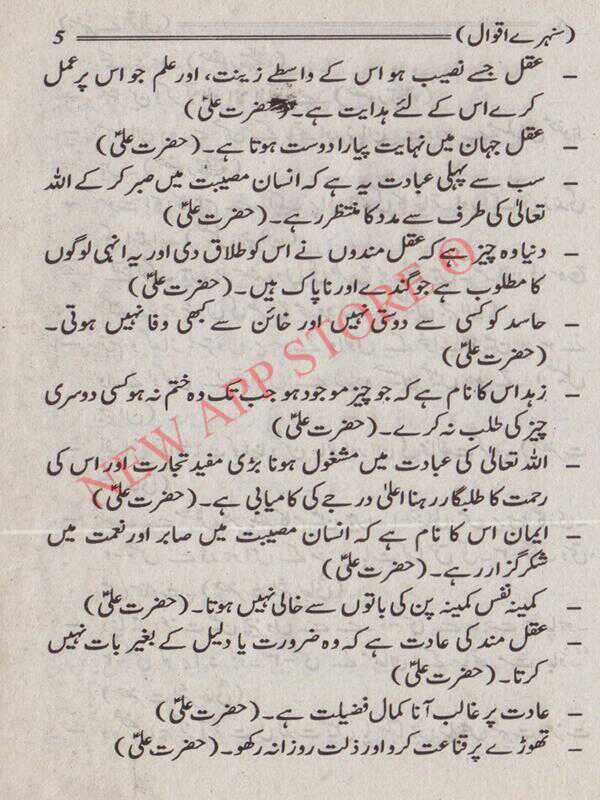 (سنہرے اقوال) 5
– عقل جسے نصیب ہو اس کے واسطے زینت، اور علم جو اس پر عمل
کرے اس کے لئے ہدایت ہے۔ (حضرت علیؓ)
– عقل جہان میں نہایت پیارا دوست ہوتا ہے۔ (حضرت علیؓ)
– سب سے پہلی عبادت یہ ہے کہ انسان مصیبت میں صبر کر کے اللہ
تعالیٰ کی طرف سے مدد کا منتظر رہے۔ (حضرت علیؓ)
– دنیا وہ چیز ہے کہ عقل مندوں نے اس کو طلاق دی اور یہ انہی لوگوں
کا مطلوب ہے جو گندے اور ناپاک ہیں۔ (حضرت علیؓ)
– حاسد کو کسی سے دوستی نہیں اور خائن سے کبھی وفا نہیں ہوتی۔
(حضرت علیؓ)
– زہد اس کا نام ہے کہ جو چیز موجود ہو جب تک وہ ختم نہ ہو کسی دوسری
چیز کی طلب نہ کرے۔ (حضرت علیؓ)
– اللہ تعالیٰ کی عبادت میں مشغول ہونا بڑی مفید تجارت اور اس کی
رحمت کا طلبگار رہنا اعلیٰ درجے کی کامیابی ہے۔ (حضرت علیؓ)
– ایمان اس کا نام ہے کہ انسان مصیبت میں صابر اور نعمت میں
شکرگزار رہے۔ (حضرت علیؓ)
– کمینہ نفس کمینہ پن کی باتوں سے خالی نہیں ہوتا۔ (حضرت علیؓ)
– عقل مند کی عادت ہے کہ وہ ضرورت یا دلیل کے بغیر بات نہیں
کرتا۔ (حضرت علیؓ)
– عادت پر غالب آنا کمال فضیلت ہے۔ (حضرت علیؓ)
– تھوڑے پر قناعت کرو اور ذلت روا نہ رکھو۔ (حضرت علیؓ)
NEW APP STORE ©